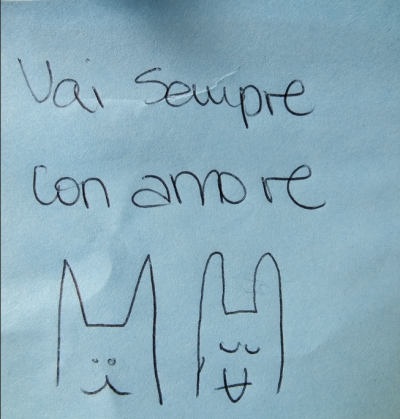 Vai sempre
con amore